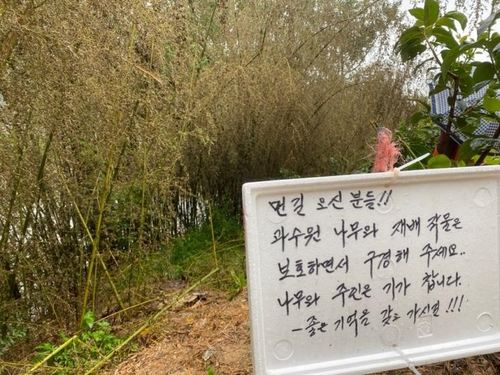 먼길 오신 분들!!
과수원 나무와 재배 작물은
보호하면서 구경해 주세요..
나무와 주인은 기가 합니다.
-좋은 기억을 갖고 가시길!!!